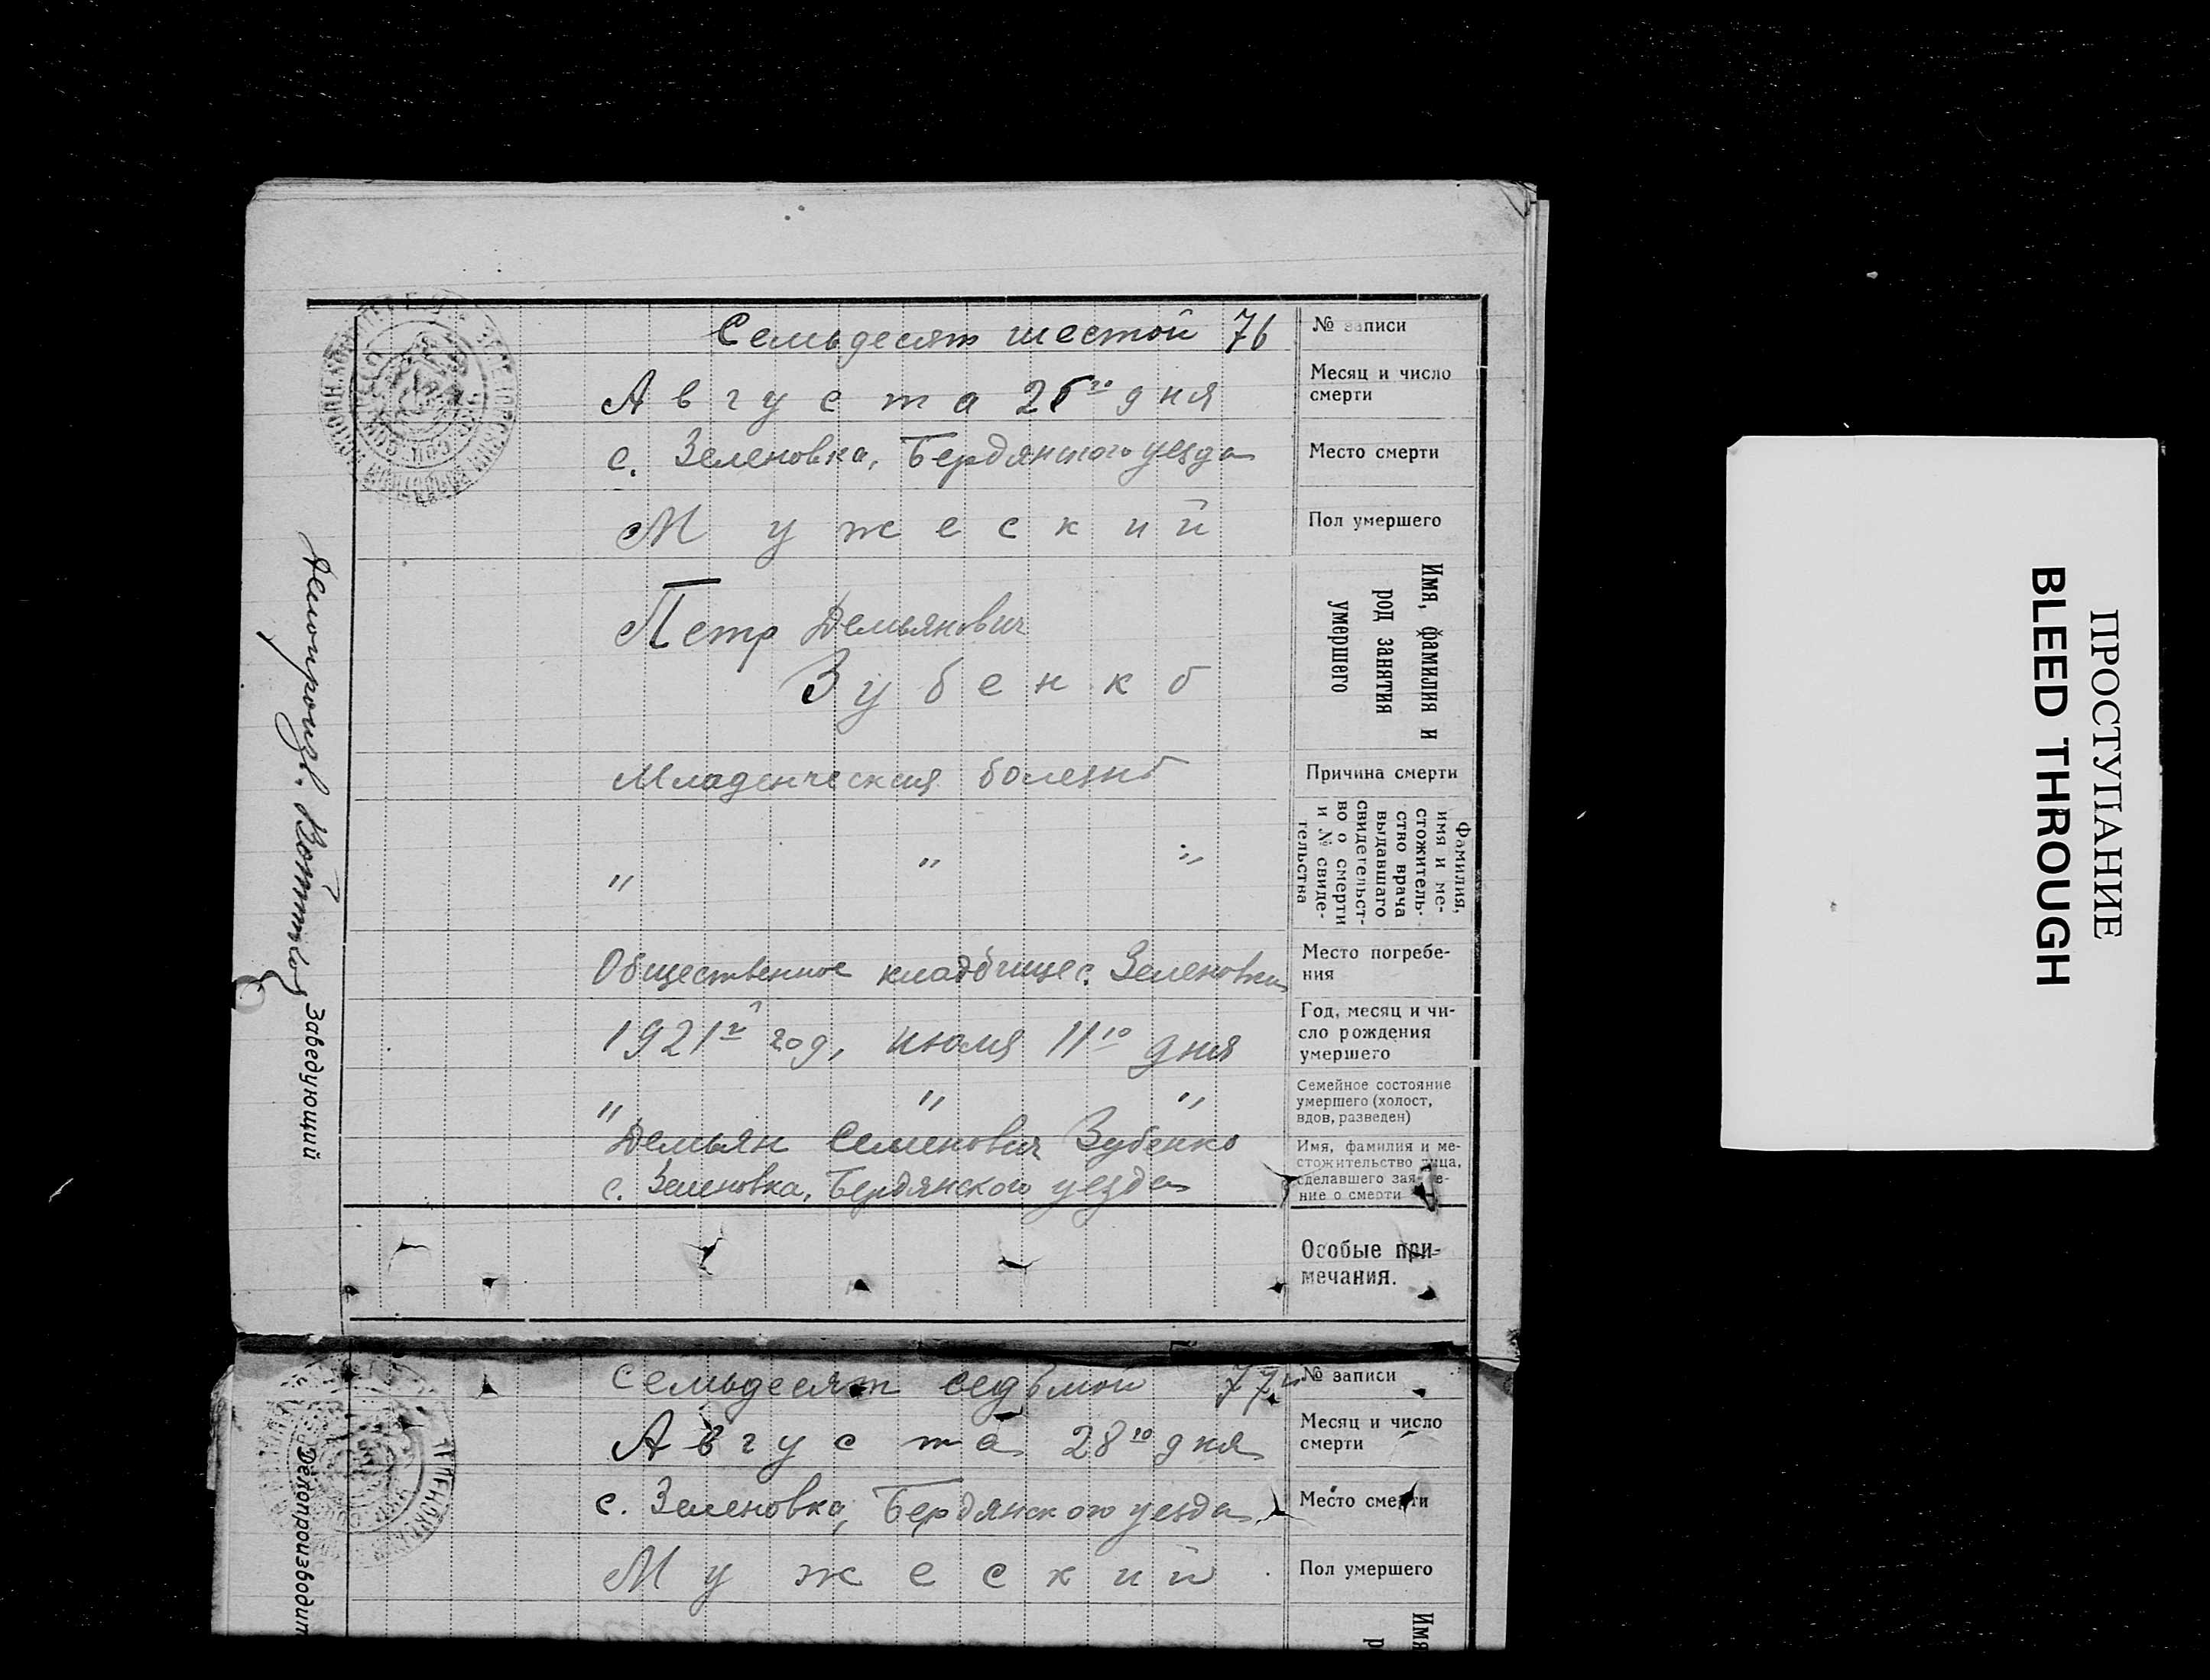 Семьдесят шестой 76
№ записи
Августа 26го дня
Месяц и число
смерти
с. Зеленовка, Бердянского уезда
Место смерти
Мужеский
Пол умершего
Петр Демьянович
Зубенко
Имя, фамилия и
род занятия
умершего
Младенческая болезнь
Причина смерти
" " "
Фамилия,
имя и ме-
стожитель-
ство врача
выдавшаго
свидетельст-
во о смерти
и № свиде-
тельства
Общественное кладбище с. Зеленовка
Место погребе-
ния
1921й год, июля 11го дня
Год, месяц и чи-
сло рождения
умершего
" " "
Семейное состояние
умершего (холост,
вдов, разведен)
Демьян Семенович Зубенко
с. Зеленовка, Бердянского уезда
Имя, фамилия и ме-
стожительство лица,
сделавшего заявле-
ние о смерти
Особые при-
мечания.
Заведующий
Делопроизв.
Семьдесят седьмой 77
№ записи
Августа 28го дня
Месяц и число
смерти
с. Зеленовка, Бердянского уезда
Место смерти
Мужеский
Пол умершего
Имя
р
Делопроизводит
ПРОСТУПАНИЕ
BLEED THROUGH